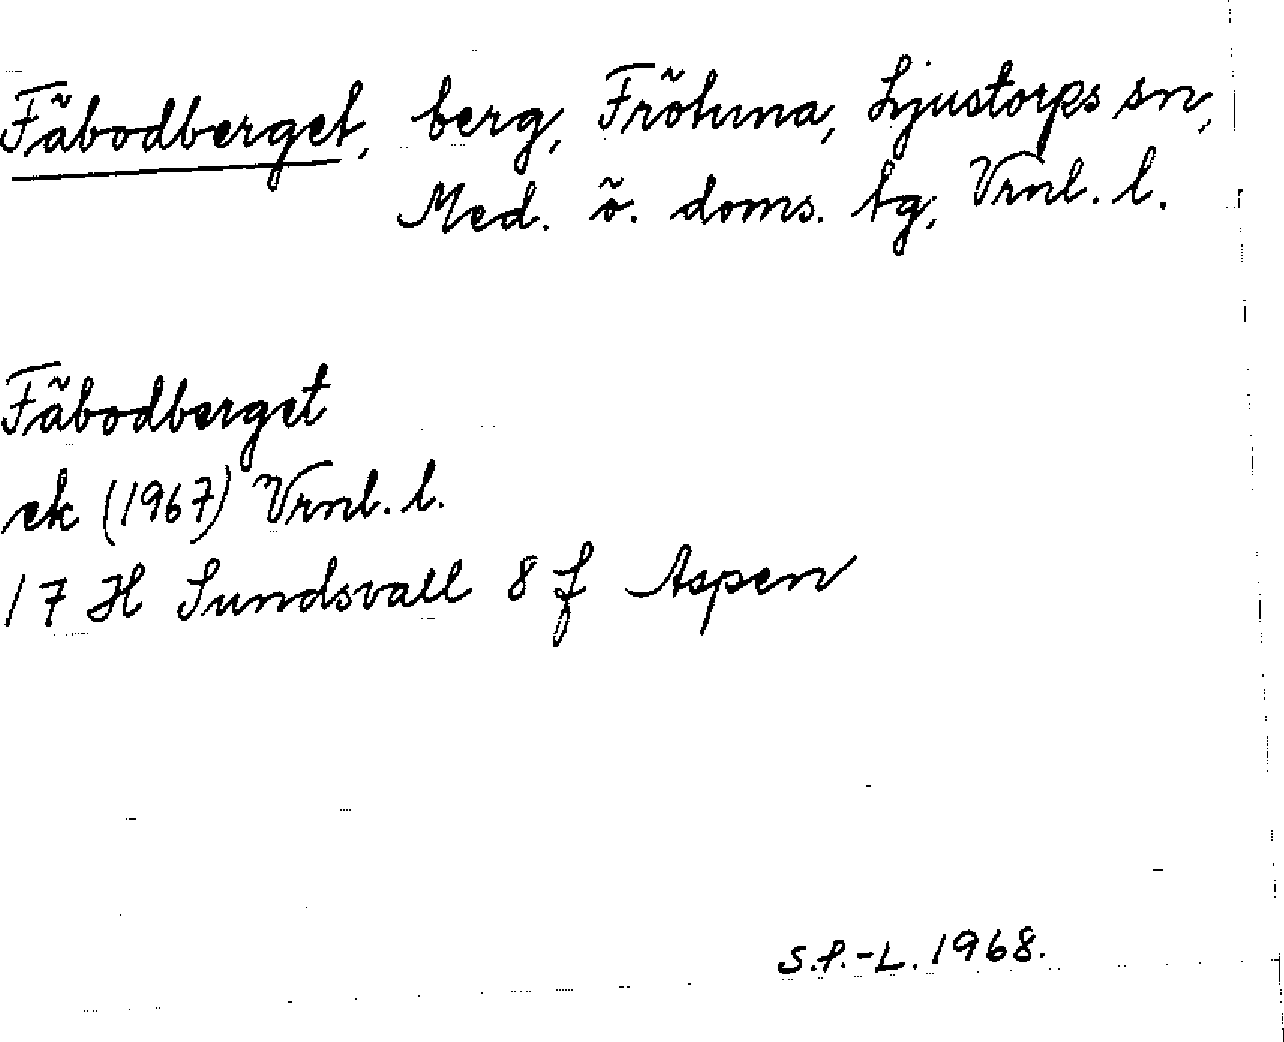 Fäbodberget, berg, Fröhuna, Ljustorps sn,
Med. ö. doms. tg, Vrnl. l.
Fäbodberget
ek (1967) Vrnl. l.
17 H Sundsvall 8 f Aspen
S.P.-L. 1968.